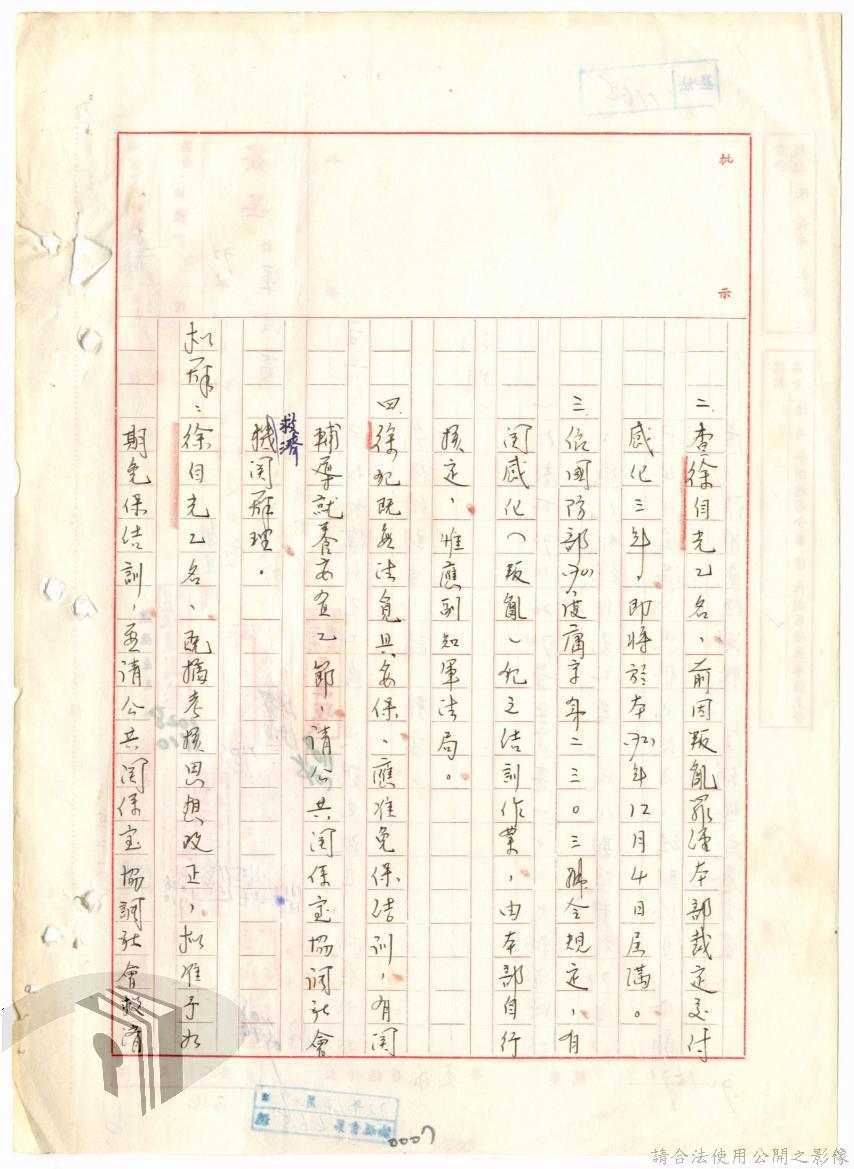 批示
二、查徐自光乙名、前因叛亂罪經本部裁定交付
感化三年，即將於本(72)年12月4日屆滿。
三、依國防部
令規定，有
関感化(叛亂)犯之結訓作業，由本部自行
核定，惟應副知軍法局。
四、徐犯既無法覓具妥保、應准免保結訓，有関
輔導就養安置乙節，請公共関係室協調社會
救濟
機関辦理。
擬辦：徐自光乙名、既據考核思想改正，擬准予如
期免保結訓，並請公共関係室協調社會救濟
0007
請合法使用公開之影像